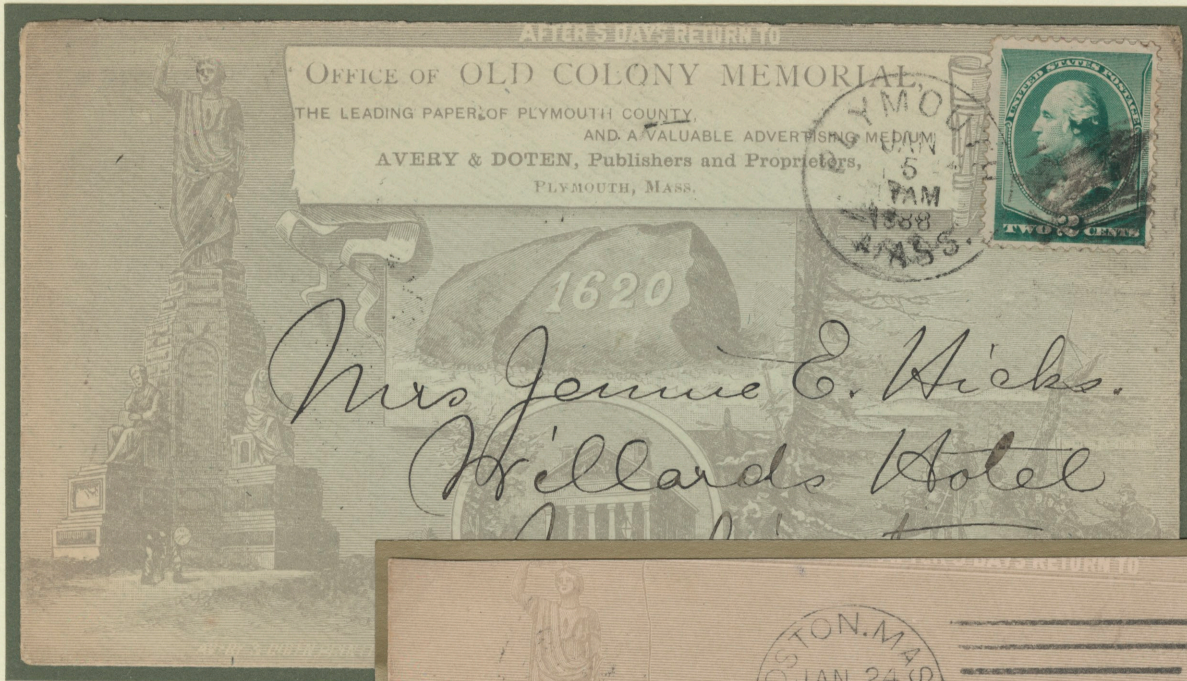 AFTER 5 DAYS RETURN TO
OFFICE OF OLD COLONY MEMORIAL,
THE LEADING PAPER OF PLYMOUTH COUNTY,
AND A VALUABLE ADVERTISING MEDIUM
AVERY & DOTEN, Publishers and Proprietors,
PLYMOUTH, MASS.
PLYMOUTH
JAN
5
7AM
1888
MASS.
UNITED STATES POSTAGE
TWO 2 CENTS
1620
Mrs Jennie E. Hicks.
Willards Hotel
AFTER 5 DAYS RETURN TO
BOSTON, MASS
JAN 24